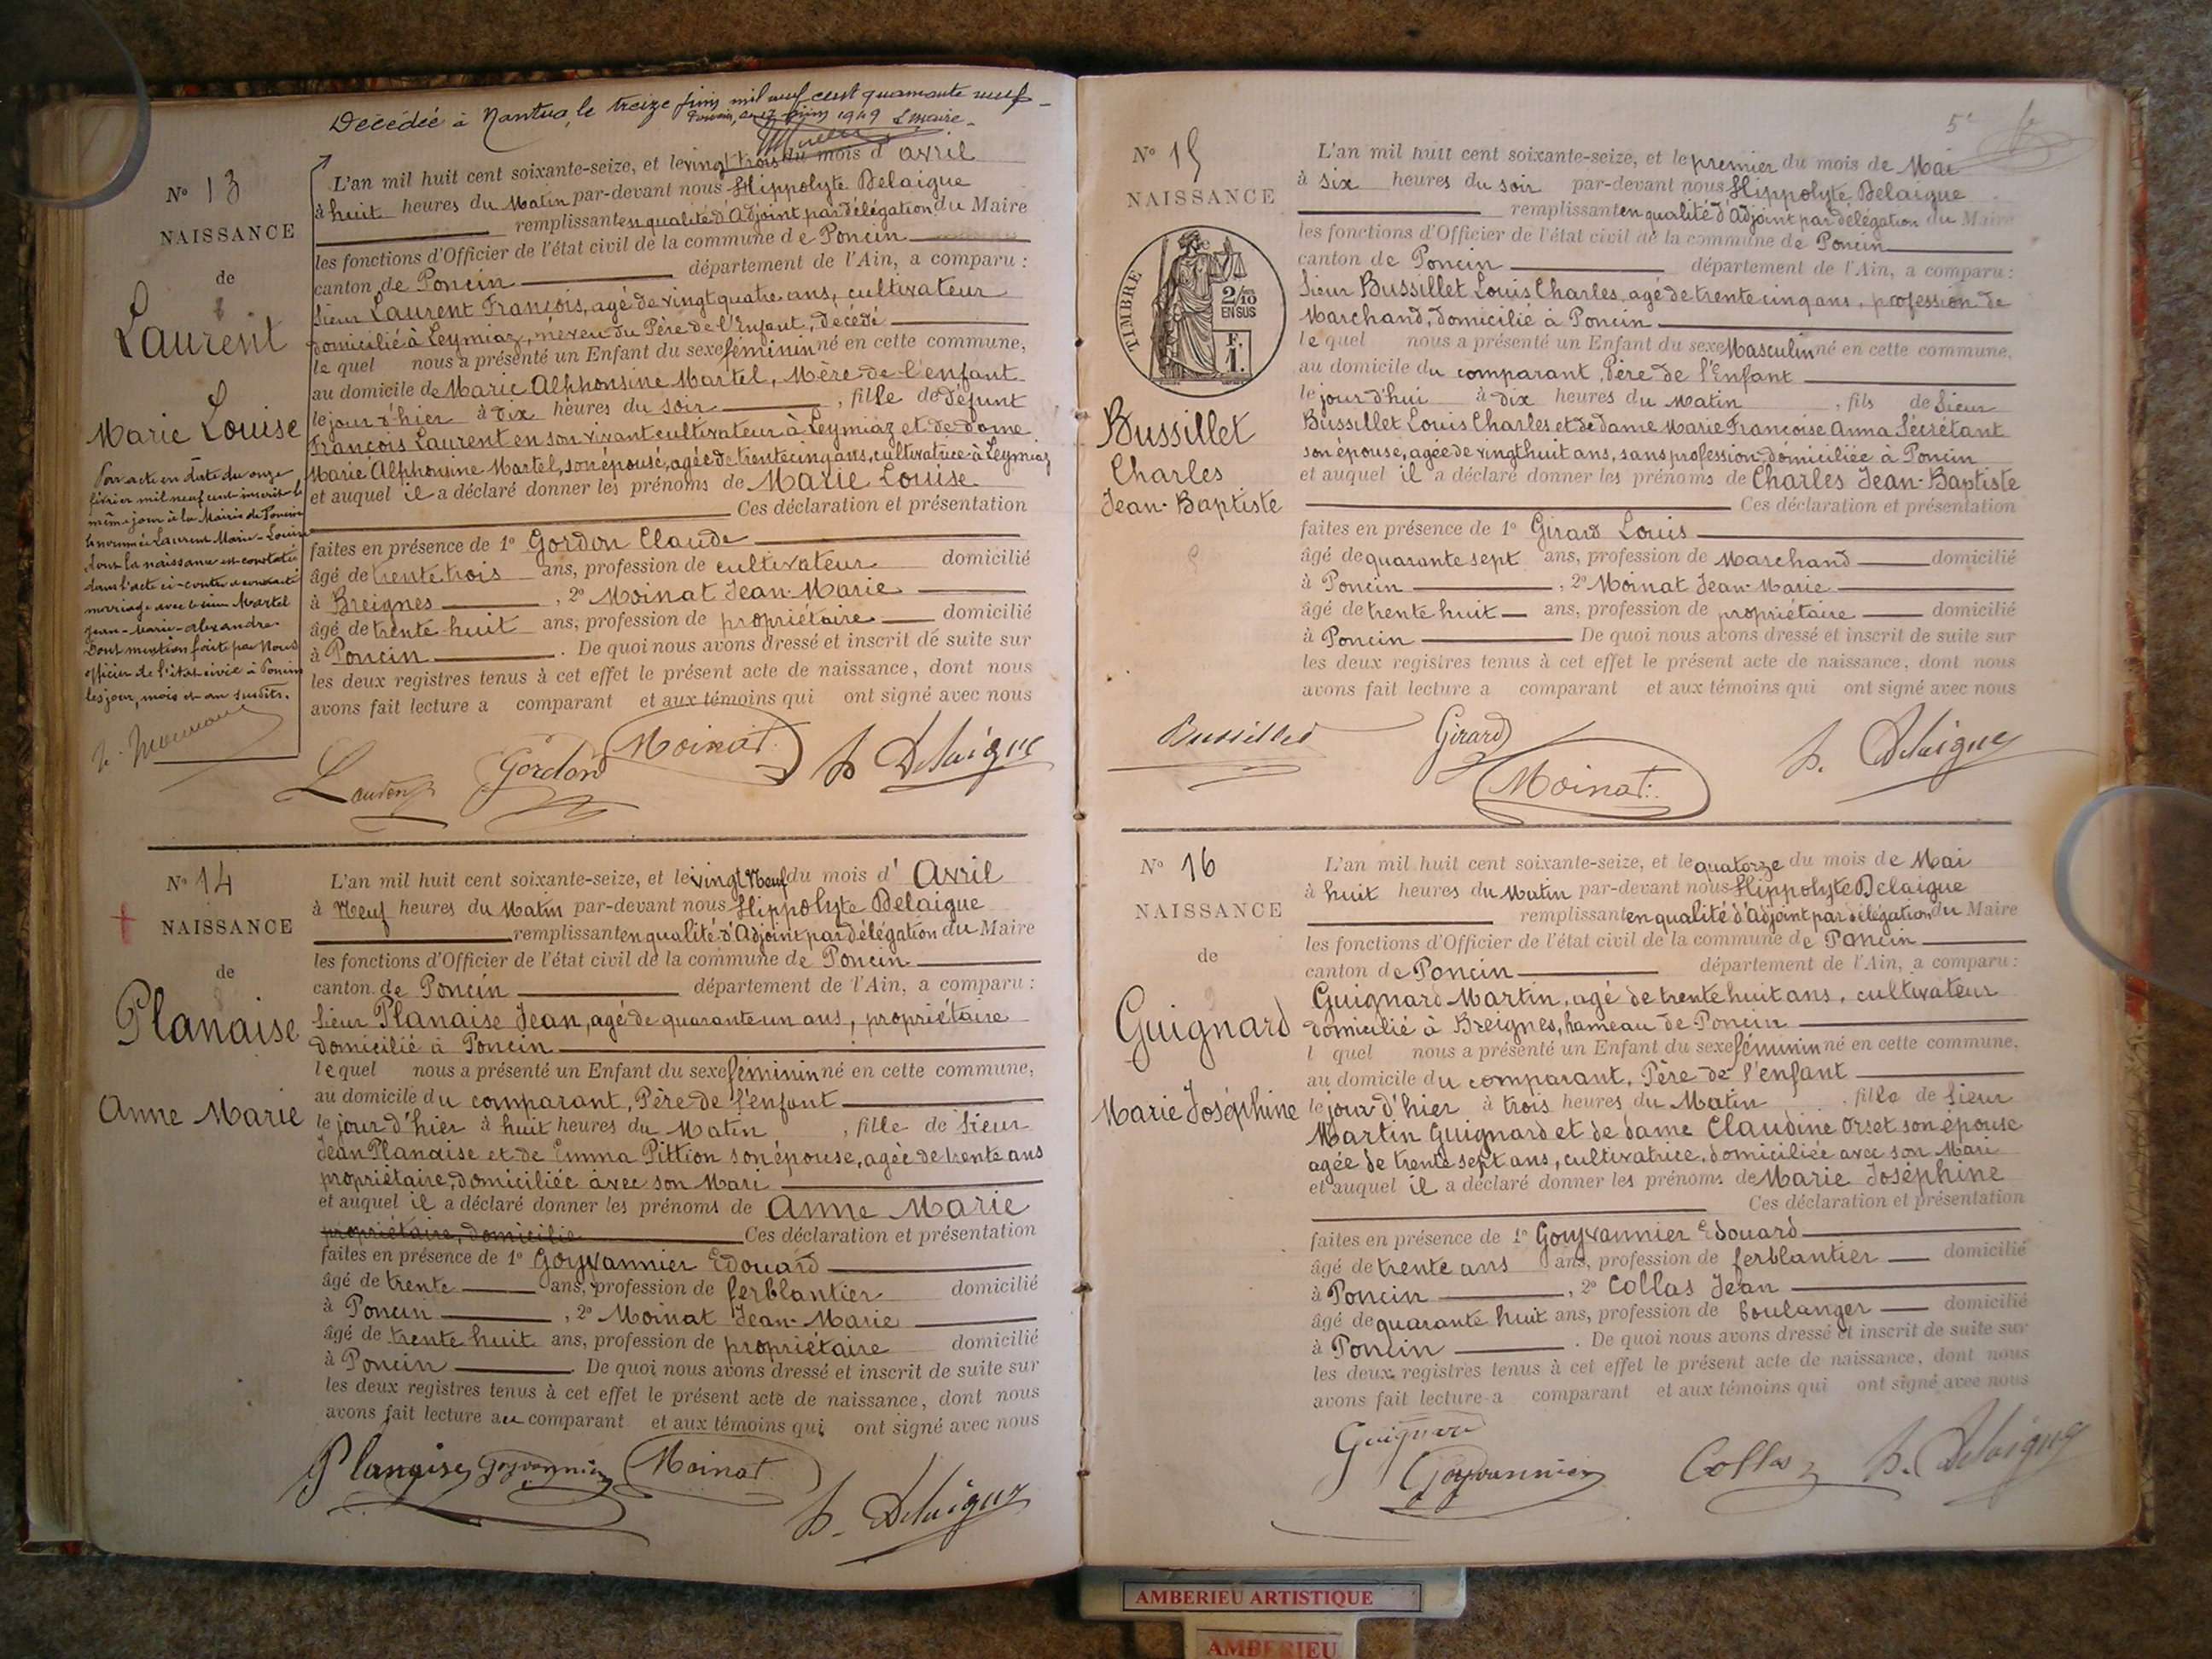 Décédée à Nantua, le treize juin mil neuf cent quarante neuf
Poncin, le 17 juin 1949 Le maire
N° 13
NAISSANCE
de
Laurent
Marie Louise
Par acte en date du onze
février mil neuf cent inscrit le
même jour à la Mairie de Poncin
la nommée Laurent Marie-Louise
dont la naissance est constatée
dans l'acte ci-contre a contracté
mariage avec le sieur Martel
Jean-Marie-Alexandre
Dont mention faite par Nous
officier de l'état civil à Poncin
les jour, mois et an susdits.
L'an mil huit cent soixante-seize, et le vingt trois du mois d'avril
à huit heures du Matin par-devant nous Hippolyte Delaigue
remplissant en qualité d'Adjoint par délégation du Maire
les fonctions d'Officier de l'état civil de la commune de Poncin
canton de Poncin département de l'Ain, a comparu :
Sieur Laurent François, agé de vingt quatre ans, cultivateur
domicilié à Leymiaz, neveu du Père de l'Enfant, décédé
le quel nous a présenté un Enfant du sexe féminin né en cette commune,
au domicile de Marie Alphonsine Martel, Mère de l'enfant
le jour d'hier à dix heures du soir , fille de défunt
François Laurent en son vivant cultivateur à Leymiaz et de dame
Marie Alphonsine Martel, son épouse, agée de trente cinq ans, cultivatrice à Leymiaz
et auquel il a déclaré donner les prénoms de Marie Louise
Ces déclaration et présentation
faites en présence de 1° Gordon Claude
âgé de trente trois ans, profession de cultivateur domicilié
à Breignes , 2° Moinat Jean-Marie
âgé de trente huit ans, profession de propriétaire domicilié
à Poncin . De quoi nous avons dressé et inscrit de suite sur
les deux registres tenus à cet effet le présent acte de naissance, dont nous
avons fait lecture a comparant et aux témoins qui ont signé avec nous
Laurent Gordon Moinat h. Delaigue
N° 14
NAISSANCE
de
Planaise
Anne Marie
L'an mil huit cent soixante-seize, et le vingt Neuf du mois d'Avril
à Neuf heures du Matin par-devant nous Hippolyte Delaigue
remplissant en qualité d'Adjoint par délégation du Maire
les fonctions d'Officier de l'état civil de la commune de Poncin
canton de Poncin département de l'Ain, a comparu :
Sieur Planaise Jean, agé de quarante un ans, propriétaire
domicilié à Poncin
le quel nous a présenté un Enfant du sexe féminin né en cette commune,
au domicile du comparant, Père de l'enfant
le jour d'hier à huit heures du Matin , fille de Sieur
Jean Planaise et de Emma Pittion son épouse, agée de trente ans
propriétaire, domiciliée avec son Mari
et auquel il a déclaré donner les prénoms de Anne Marie
propriétaire, domicilié Ces déclaration et présentation
faites en présence de 1° Goyvannier Edouard
âgé de trente ans, profession de ferblantier domicilié
à Poncin , 2° Moinat Jean-Marie
âgé de trente huit ans, profession de propriétaire domicilié
à Poncin . De quoi nous avons dressé et inscrit de suite sur
les deux registres tenus à cet effet le présent acte de naissance, dont nous
avons fait lecture au comparant et aux témoins qui ont signé avec nous
Planaise Goyvannier Moinat
h. Delaigue
5e
N° 15
NAISSANCE
TIMBRE
2/10
EN SUS
F.
1.
Bussillet
Charles
Jean-Baptiste
L'an mil huit cent soixante-seize, et le premier du mois de Mai
à six heures du soir par-devant nous Hippolyte Delaigue
remplissant en qualité d'Adjoint par délégation du Maire
les fonctions d'Officier de l'état civil de la commune de Poncin
canton de Poncin département de l'Ain, a comparu :
Sieur Bussillet Louis Charles, agé de trente cinq ans, profession de
Marchand, domicilié à Poncin
le quel nous a présenté un Enfant du sexe Masculin né en cette commune,
au domicile du comparant, Père de l'Enfant
le jour d'hui à dix heures du Matin , fils de Sieur
Bussillet Louis Charles et de dame Marie Françoise Anna Sécrétant
son épouse, agée de vingt huit ans, sans profession, domiciliée à Poncin
et auquel il a déclaré donner les prénoms de Charles Jean-Baptiste
Ces déclaration et présentation
faites en présence de 1° Girard Louis
âgé de quarante sept ans, profession de Marchand domicilié
à Poncin , 2° Moinat Jean-Marie
âgé de trente huit ans, profession de propriétaire domicilié
à Poncin De quoi nous avons dressé et inscrit de suite sur
les deux registres tenus à cet effet le présent acte de naissance, dont nous
avons fait lecture a comparant et aux témoins qui ont signé avec nous
Bussillet Girard h. Delaigue
Moinat
N° 16
NAISSANCE
de
Guignard
Marie Joséphine
L'an mil huit cent soixante-seize, et le quatorze du mois de Mai
à huit heures du Matin par-devant nous Hippolyte Delaigue
remplissant en qualité d'Adjoint par délégation du Maire
les fonctions d'Officier de l'état civil de la commune de Poncin
canton de Poncin département de l'Ain, a comparu :
Guignard Martin, agé de trente huit ans, cultivateur
domicilié à Breignes, hameau de Poncin
l quel nous a présenté un Enfant du sexe féminin né en cette commune,
au domicile du comparant, Père de l'enfant
le jour d'hier à trois heures du Matin , fille de Sieur
Martin Guignard et de dame Claudine Orset son épouse
agée de trente sept ans, cultivatrice, domiciliée avec son Mari
et auquel il a déclaré donner les prénoms de Marie Joséphine
Ces déclaration et présentation
faites en présence de 1° Goyvannier Edouard
âgé de trente ans ans, profession de ferblantier domicilié
à Poncin , 2° Collas Jean
âgé de quarante huit ans, profession de boulanger domicilié
à Poncin . De quoi nous avons dressé et inscrit de suite sur
les deux registres tenus à cet effet le présent acte de naissance, dont nous
avons fait lecture a comparant et aux témoins qui ont signé avec nous
Guignard
Goyvannier Collas h. Delaigue
AMBERIEU ARTISTIQUE
AMBERIEU